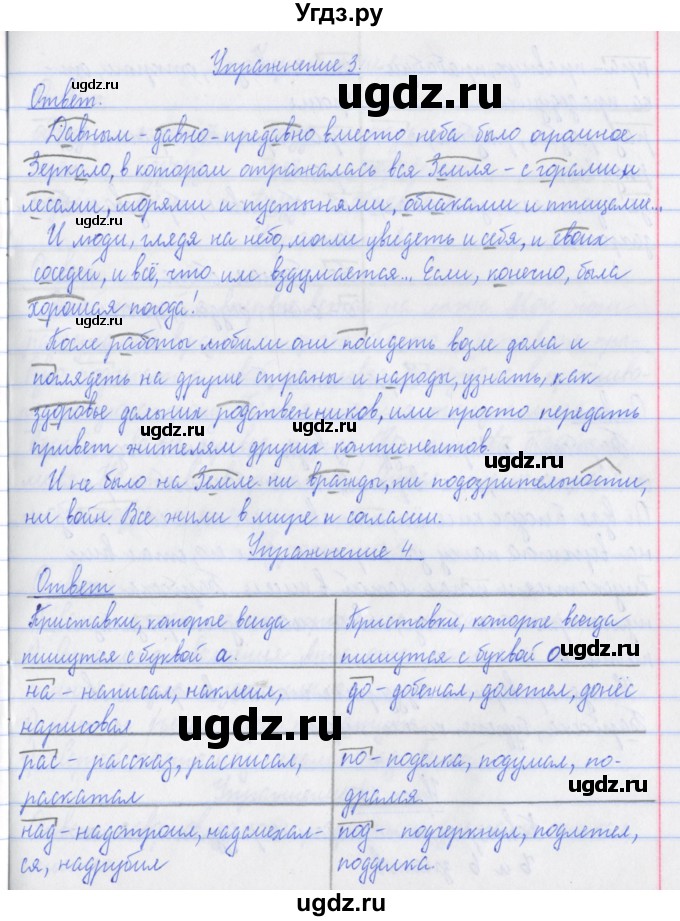 Угдз.ру
Упражнение 3.
Ответ:
Давным-давно-предавно вместо неба было огромное
Зеркало, в котором отражалась вся Земля - с горами и
лесами, морями и пустынями, облаками и птицами...
И люди, глядя на небо, могли увидеть и себя, и своих
соседей, и всё, что им вздумается... Если, конечно, была
хорошая погода!
После работы любили они посидеть возле дома и
поглядеть на другие страны и народы, узнать, как
здоровье дальних родственников, или просто передать
привет жителям других континентов.
И не было на Земле ни вражды, ни подозрительности,
ни войн. Все жили в мире и согласии.
Упражнение 4
Ответ
Приставки, которые всегда
пишутся с буквой а.
Приставки, которые всегда
пишутся с буквой о.
на - написал, наклеил,
нарисовал
до - добежал, долетел, донёс
рас - рассказ, расписал,
раскатал
по - поделка, подумал, по-
дрался.
над - надстроил, надсмехал-
ся, надрубил
под - подчеркнул, подлетел,
подделка.
ugdz.ru
ugdz.ru
ugdz.ru
ugdz.ru
ugdz.ru
ugdz.ru
ugdz.ru
ugdz.ru
ugdz.ru
ugdz.ru
ugdz.ru
ugdz.ru
ugdz.ru